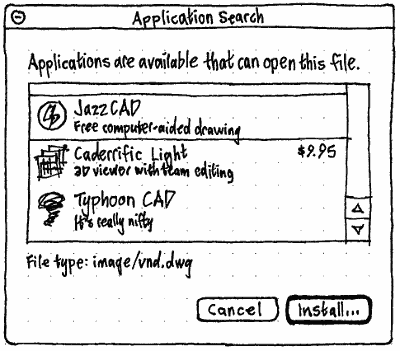 Application Search
Applications are available that can open this file.
JazzCAD
Free computer-aided drawing
Caderrific Light $9.95
3D viewer with team editing
Typhoon CAD
It's really nifty
File type: image/vnd.dwg
Cancel Install...